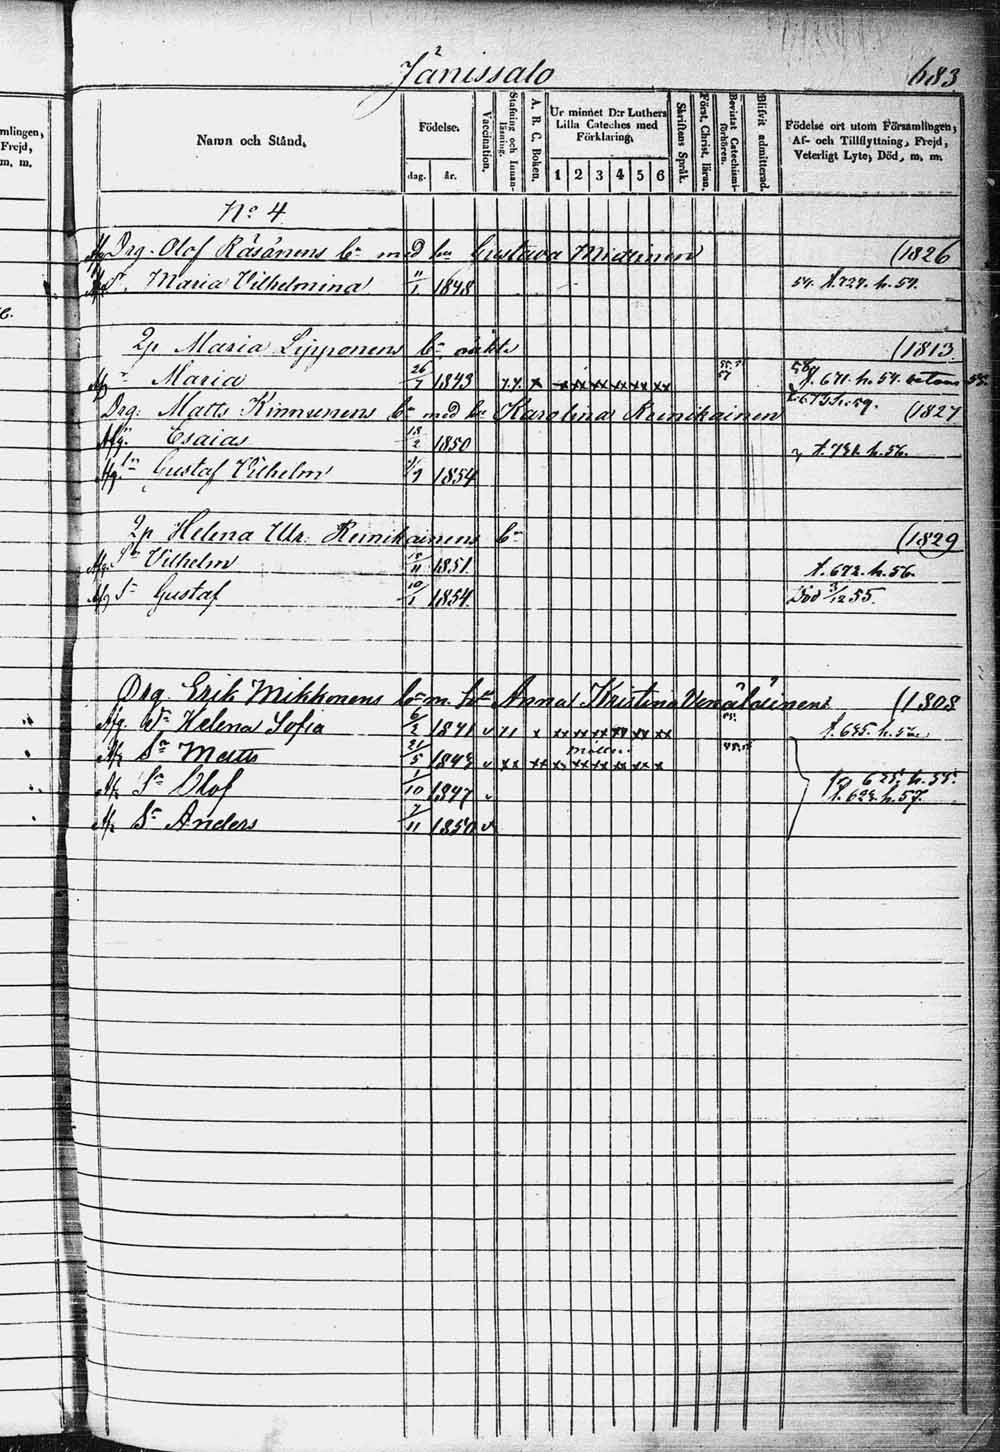 mlingen,
Frejd,
m. m.
Jänissalo 683
Namn och Stånd.
Födelse.
dag. år.
Vaccination.
Stafning och Innanläsning.
A. B. C. Boken.
Ur minnet D:r Luthers
Lilla Cateches med
Förklaring.
1 2 3 4 5 6
Skriftens Språk.
Först. Christ. läran.
Bevistat Catechismiförhören.
Blifvit admitterad.
Födelse ort utom Församlingen,
Af- och Tillflyttning, Frejd,
Veterligt Lyte, Död, m. m.
No 4
Drg. Olof Räsänens bn med hu Gustava (1826
Maria Vilhelmina 11/1 1848 54. f. 727. h. 54.
Qp Maria Lipponens bn oäkta (1813.
Maria 26/7 1843 x xx xx xx xx xx f. 671. h. 54.
Drg: Matts Kinnunens bn med hu Karolina Reinikainen (1827
Afg. Esaias 18/2 1850 f. 731. h. 56.
Afg. Sn Gustaf Vilhelm 1854
Qp Helena Ulr. Reinikainens bn (1829
Vilhelm 1851. f. 672. h. 56.
Gustaf 10/1 1854. Död 3/12 55.
Drg. Erik Mikkonens bn m. hu Anna Kristina Venäläinens (1808
Afg. Helena Sofia 6/2 1841 v x xx xx xx xx xx xx
Sn Matts 21/5 v xx xx x xx xx xx xx x
Sn Olof 1/10 1847 v 625. h. 55.
f. 623. h. 57.
Sn Anders 7/11 1850 v